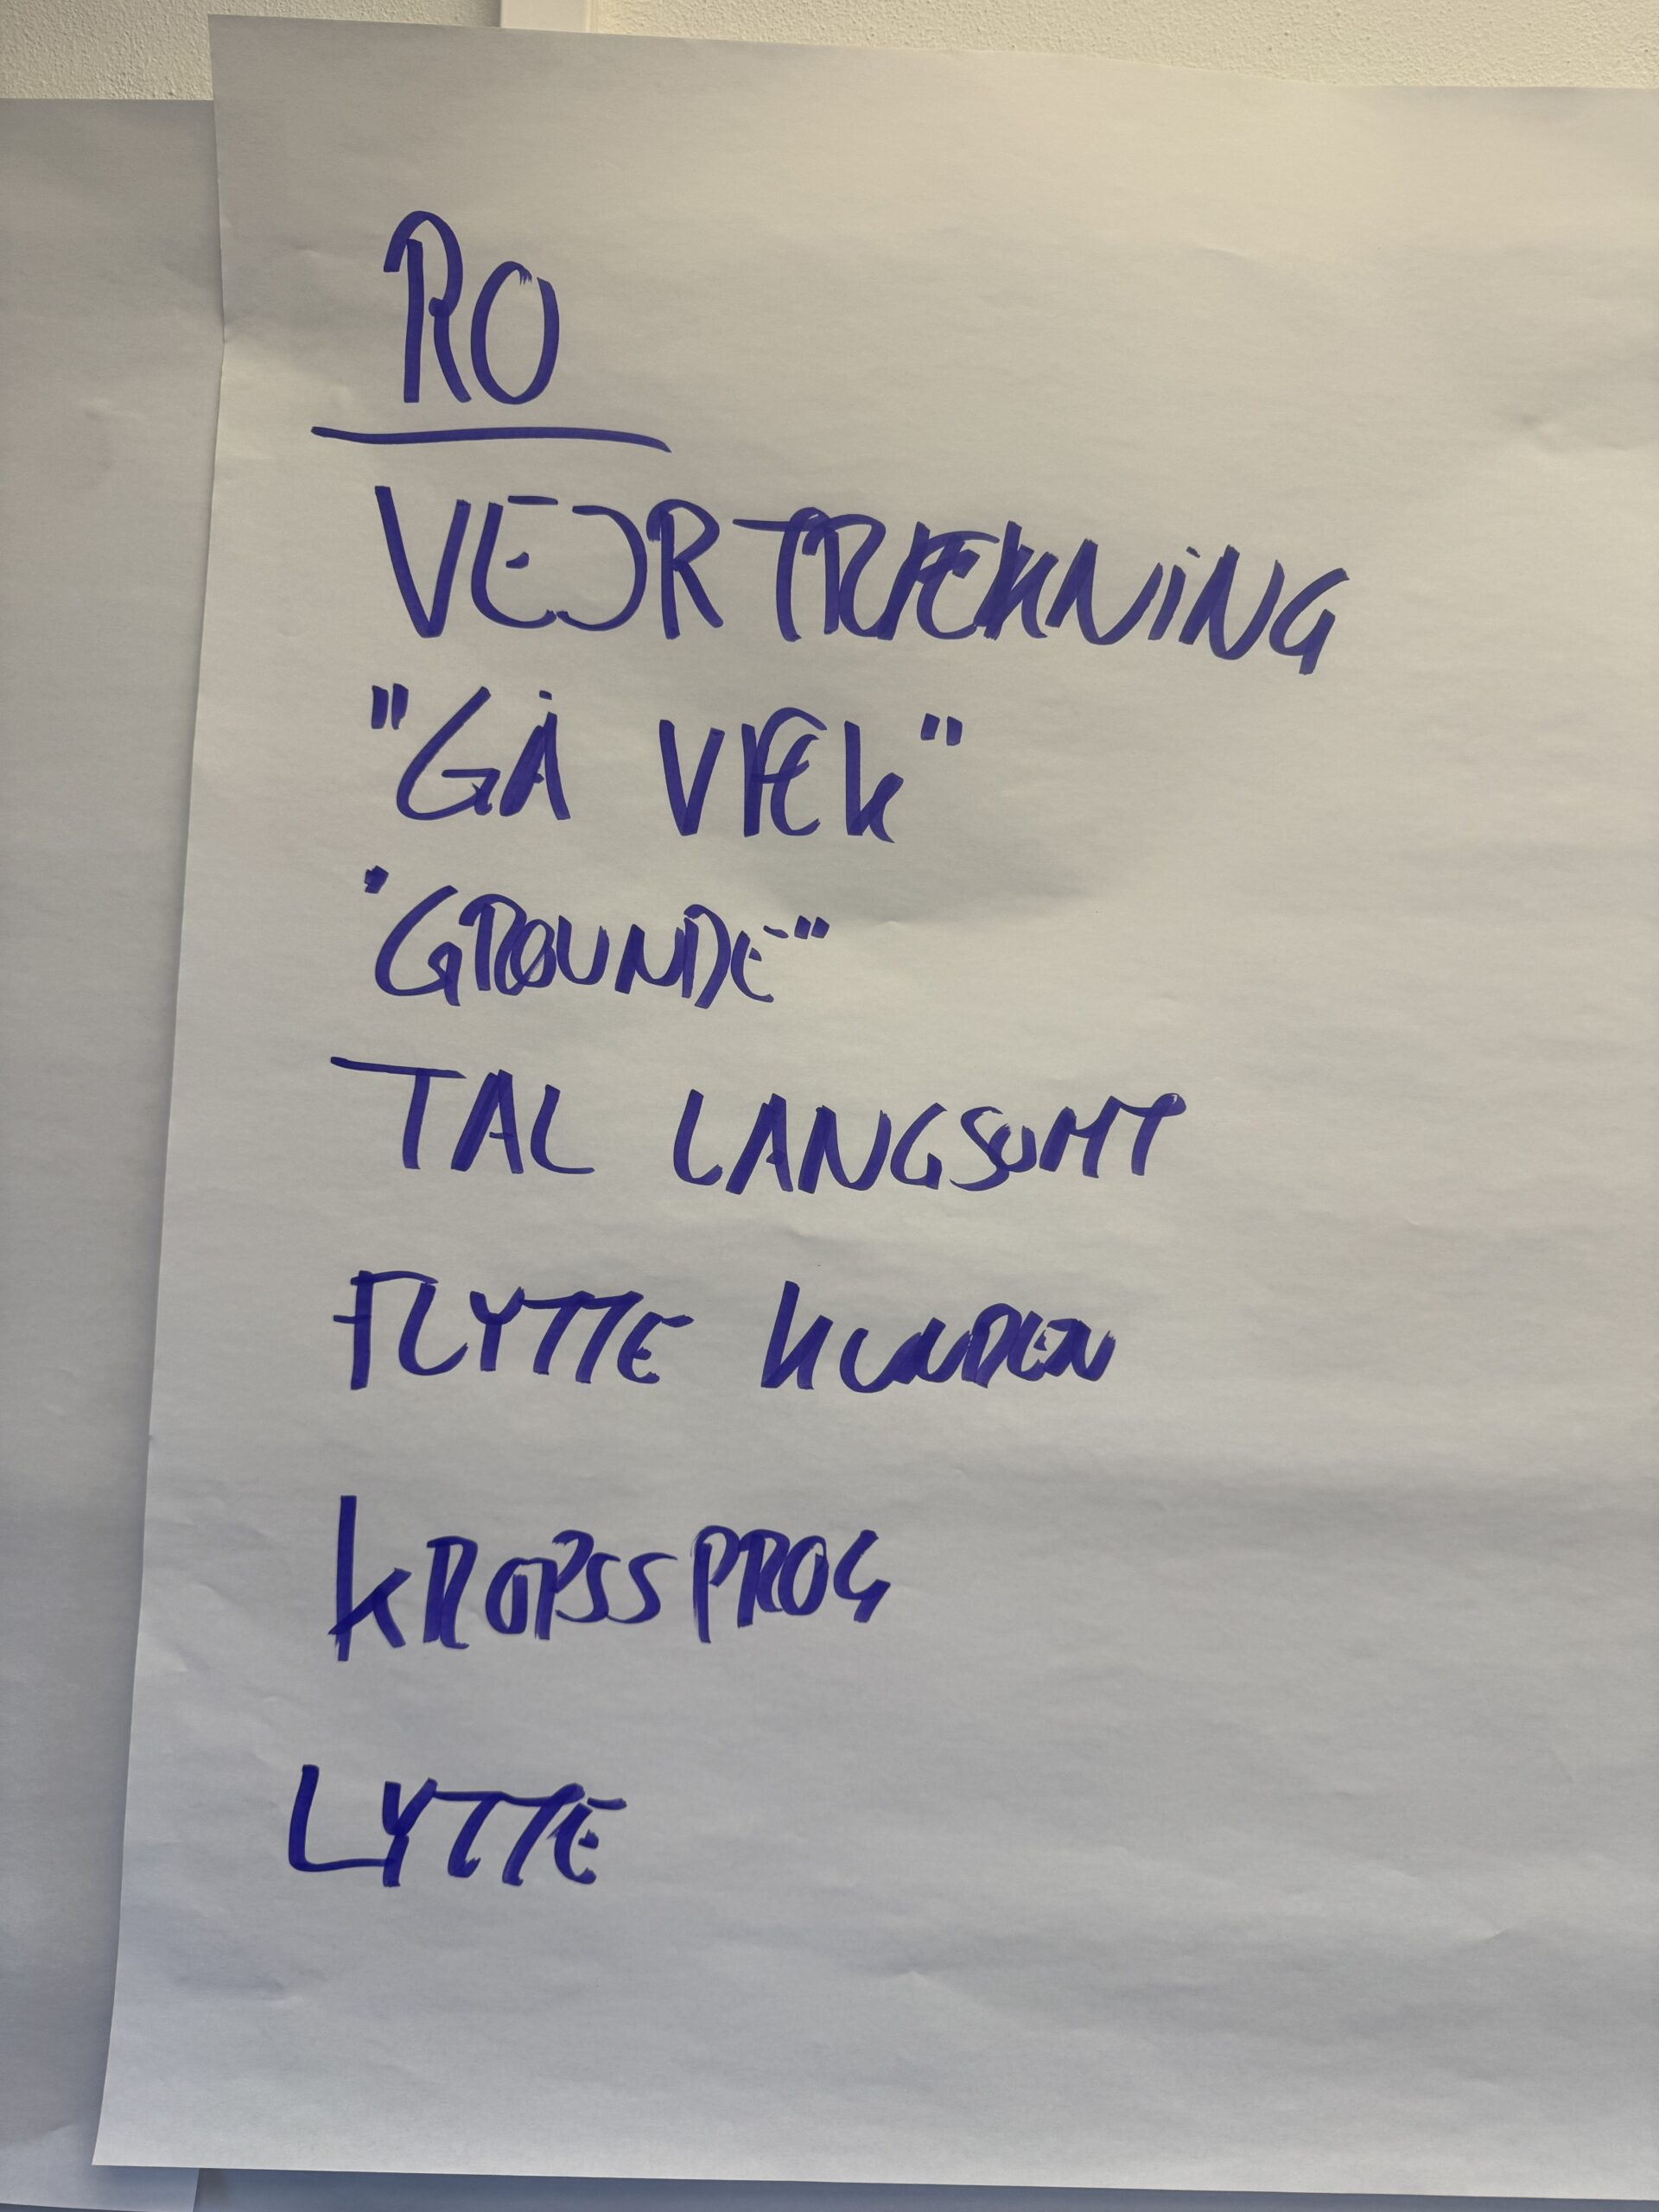 RO
VEJRTRÆKNING
"GÅ VÆK"
"GROUNDE"
TAL LANGSOMT
FLYTTE KUNDEN
KROPSSPROG
LYTTE